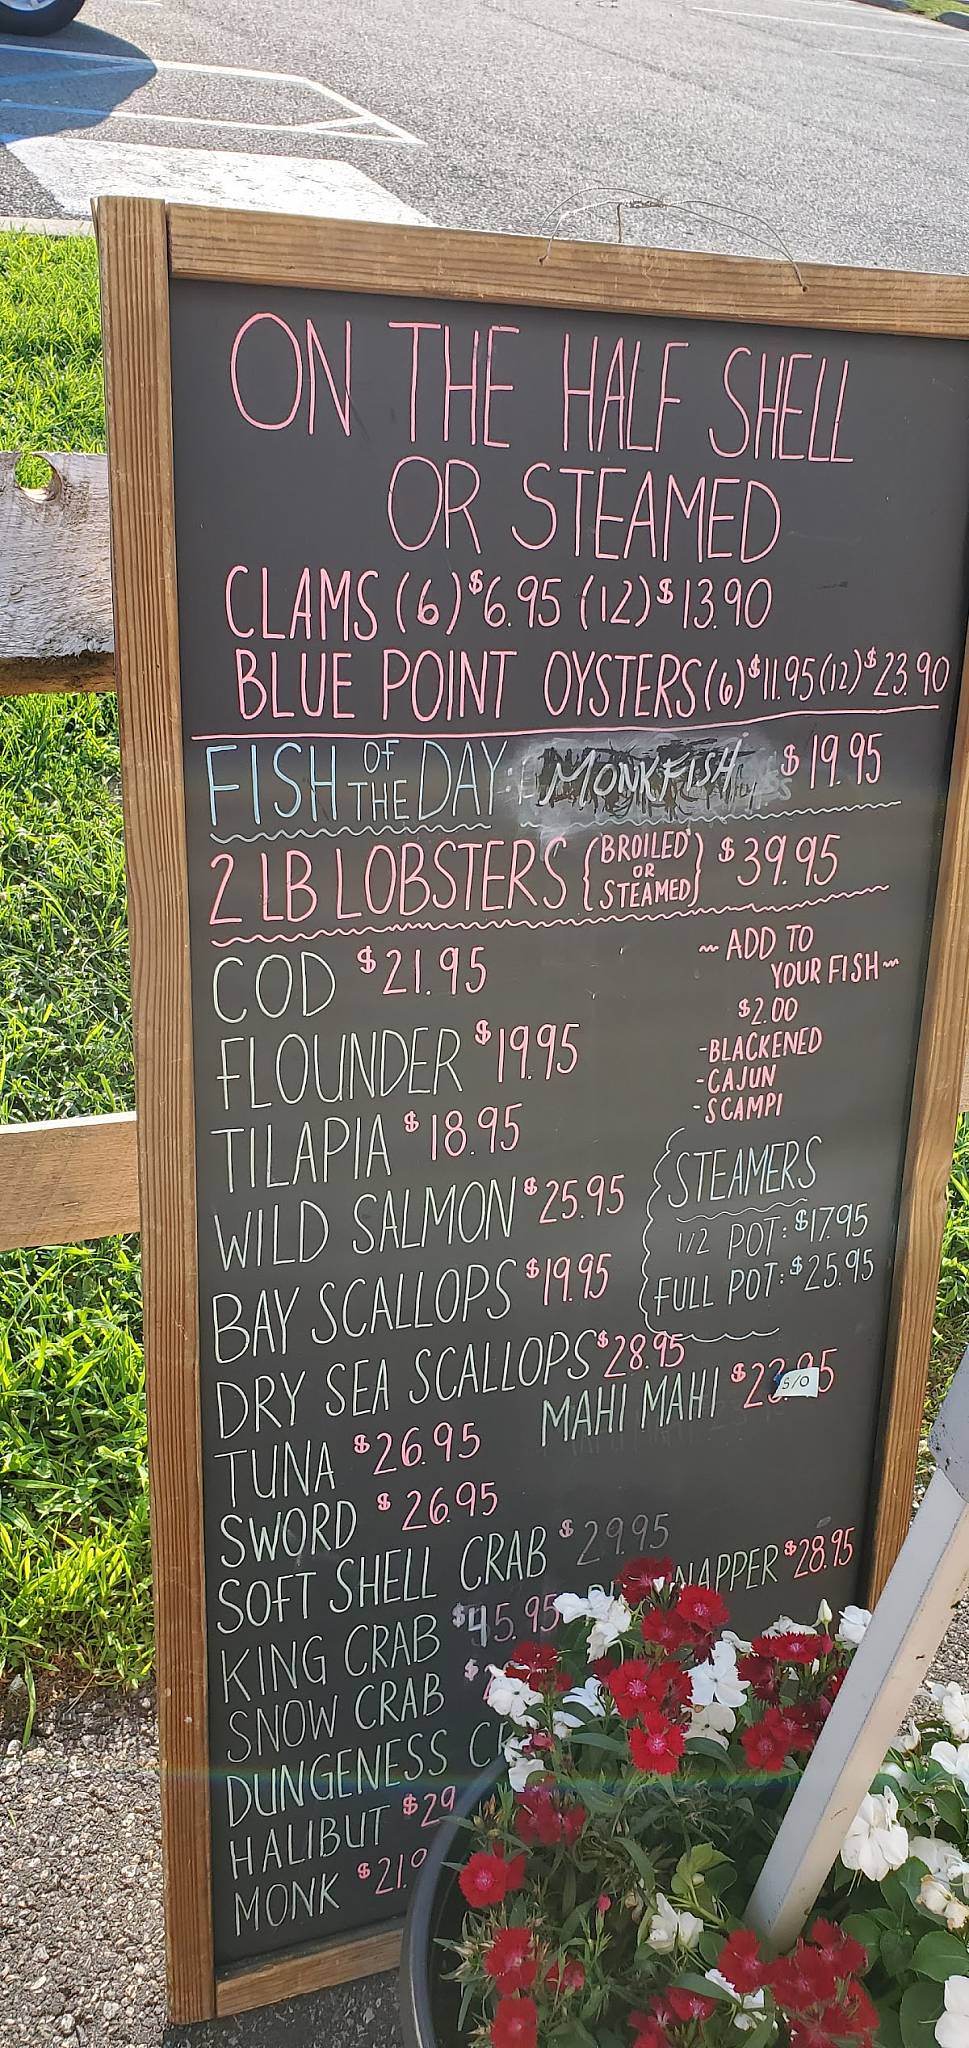 ON THE HALF SHELL
OR STEAMED
CLAMS (6) $6.95 (12) $13.90
BLUE POINT OYSTERS (6) $11.95 (12) $23.90
FISH OF THE DAY: MONKFISH $19.95
2 LB LOBSTERS {BROILED OR STEAMED} $39.95
COD $21.95
~ ADD TO
YOUR FISH ~
$2.00
-BLACKENED
-CAJUN
-SCAMPI
FLOUNDER $19.95
TILAPIA $18.95
WILD SALMON $25.95
STEAMERS
1/2 POT: $17.95
FULL POT: $25.95
BAY SCALLOPS $19.95
DRY SEA SCALLOPS $28.95
MAHI MAHI $23.95
S/O
TUNA $26.95
SWORD $26.95
SOFT SHELL CRAB $29.95
NAPPER $28.95
KING CRAB $45.95
SNOW CRAB $
DUNGENESS CR
HALIBUT $29
MONK $21.9